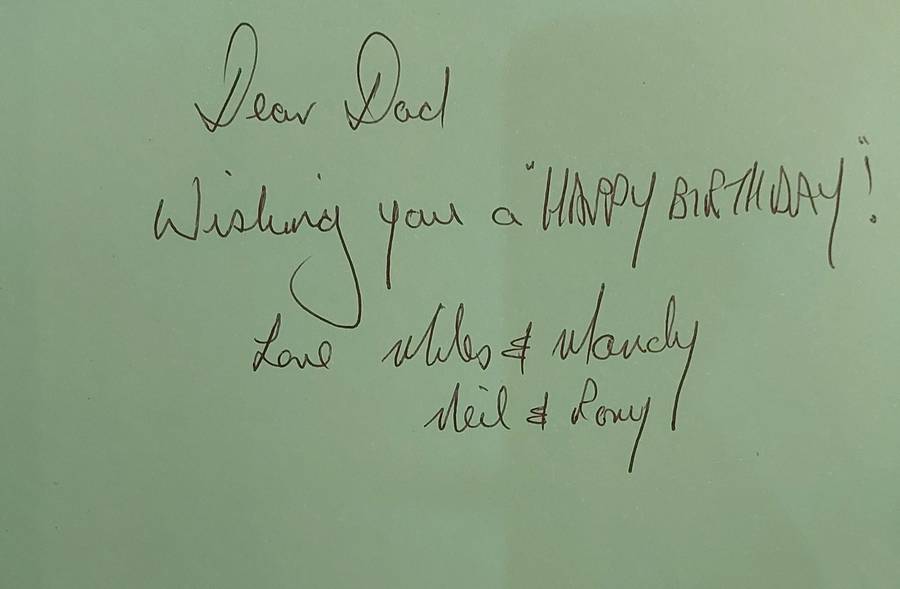 Dear Dad
Wishing you a "HAPPY BIRTHDAY"!
Love Miles & Mandy
Neil & Rony